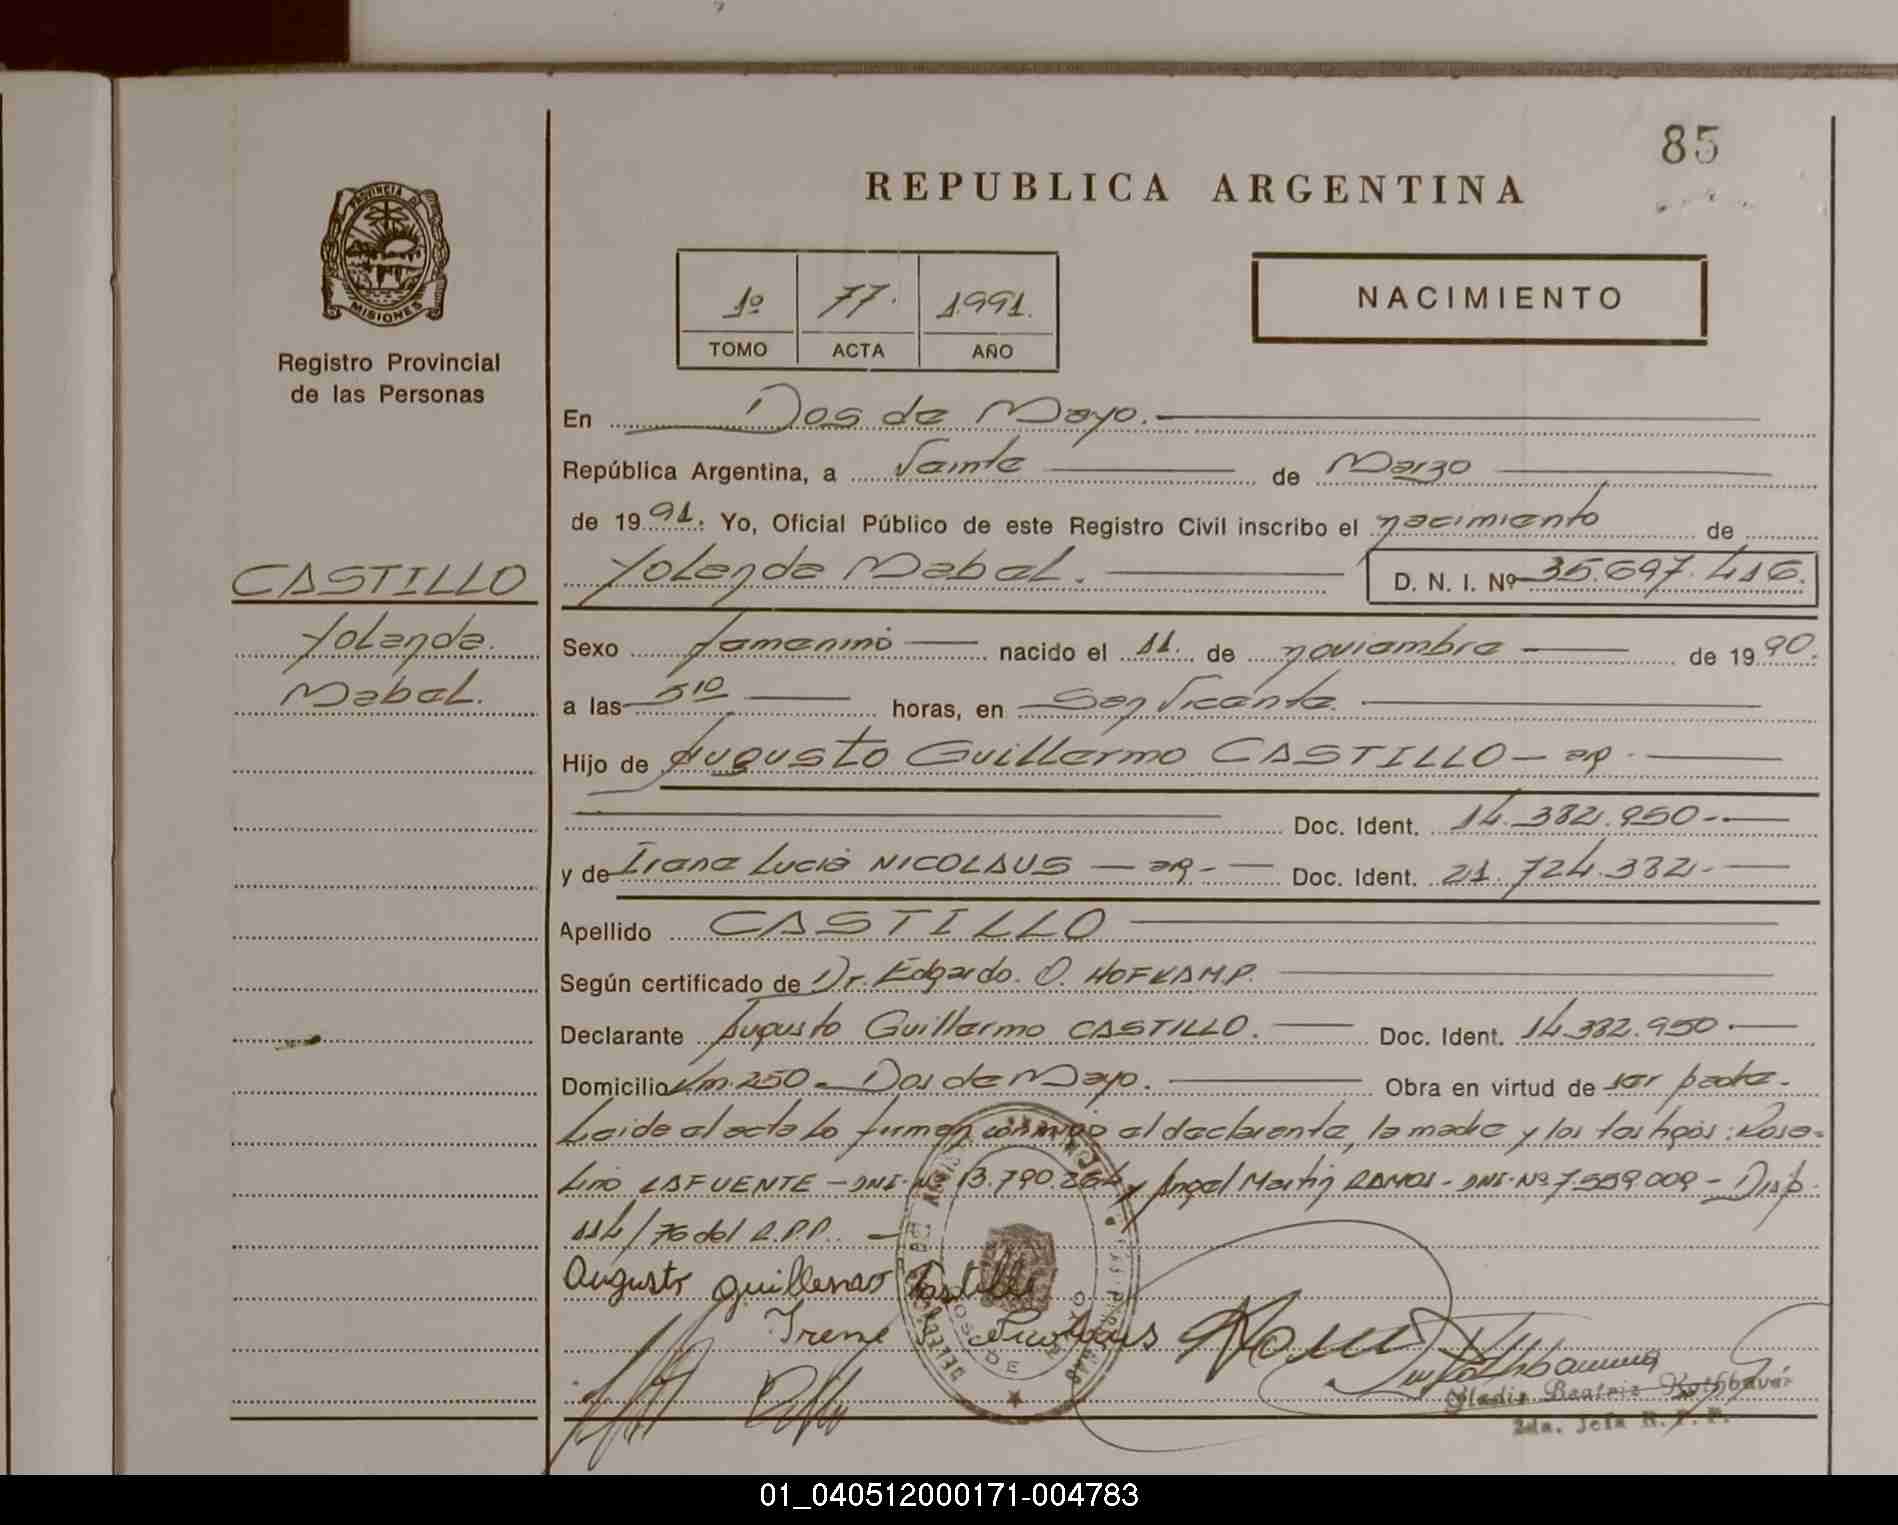 85
REPUBLICA ARGENTINA
PROVINCIA DE
MISIONES
Registro Provincial
de las Personas
1º 77. 1991.
TOMO ACTA AÑO
NACIMIENTO
En Dos de Mayo.
República Argentina, a Veinte de Marzo
de 1991. Yo, Oficial Público de este Registro Civil inscribo el nacimiento de
CASTILLO
Yolanda Mabel. D. N. I. Nº 35.697.416.
Yolanda
Mabel.
Sexo femenino nacido el 11. de noviembre de 1990.
a las 5 10 horas, en San Vicente.
Hijo de Augusto Guillermo CASTILLO
Doc. Ident. 14.382.950
y de Irene Lucia NICOLAUS Doc. Ident. 21.724.382
Apellido CASTILLO
Según certificado de Dr. Edgardo. O. HOFKAMP.
Declarante Augusto Guillermo CASTILLO. Doc. Ident. 14.382.950
Domicilio Km. 250 - Dos de Mayo. Obra en virtud de ser padre.
Leida el acta lo firman conmigo el declarante, la madre y los testigos: Rosa-
lino LAFUENTE - DNI. Nº 13.790.264 y Angel Martin RAMOS - DNI. Nº 7.559.009 - Disp.
114/76 del R.P.P.
Augusto Guillermo Castillo
Irene Nicolaus
DOS DE MAYO
Gladis Beatriz
2da. Jefa R. P. P.
01_040512000171-004783